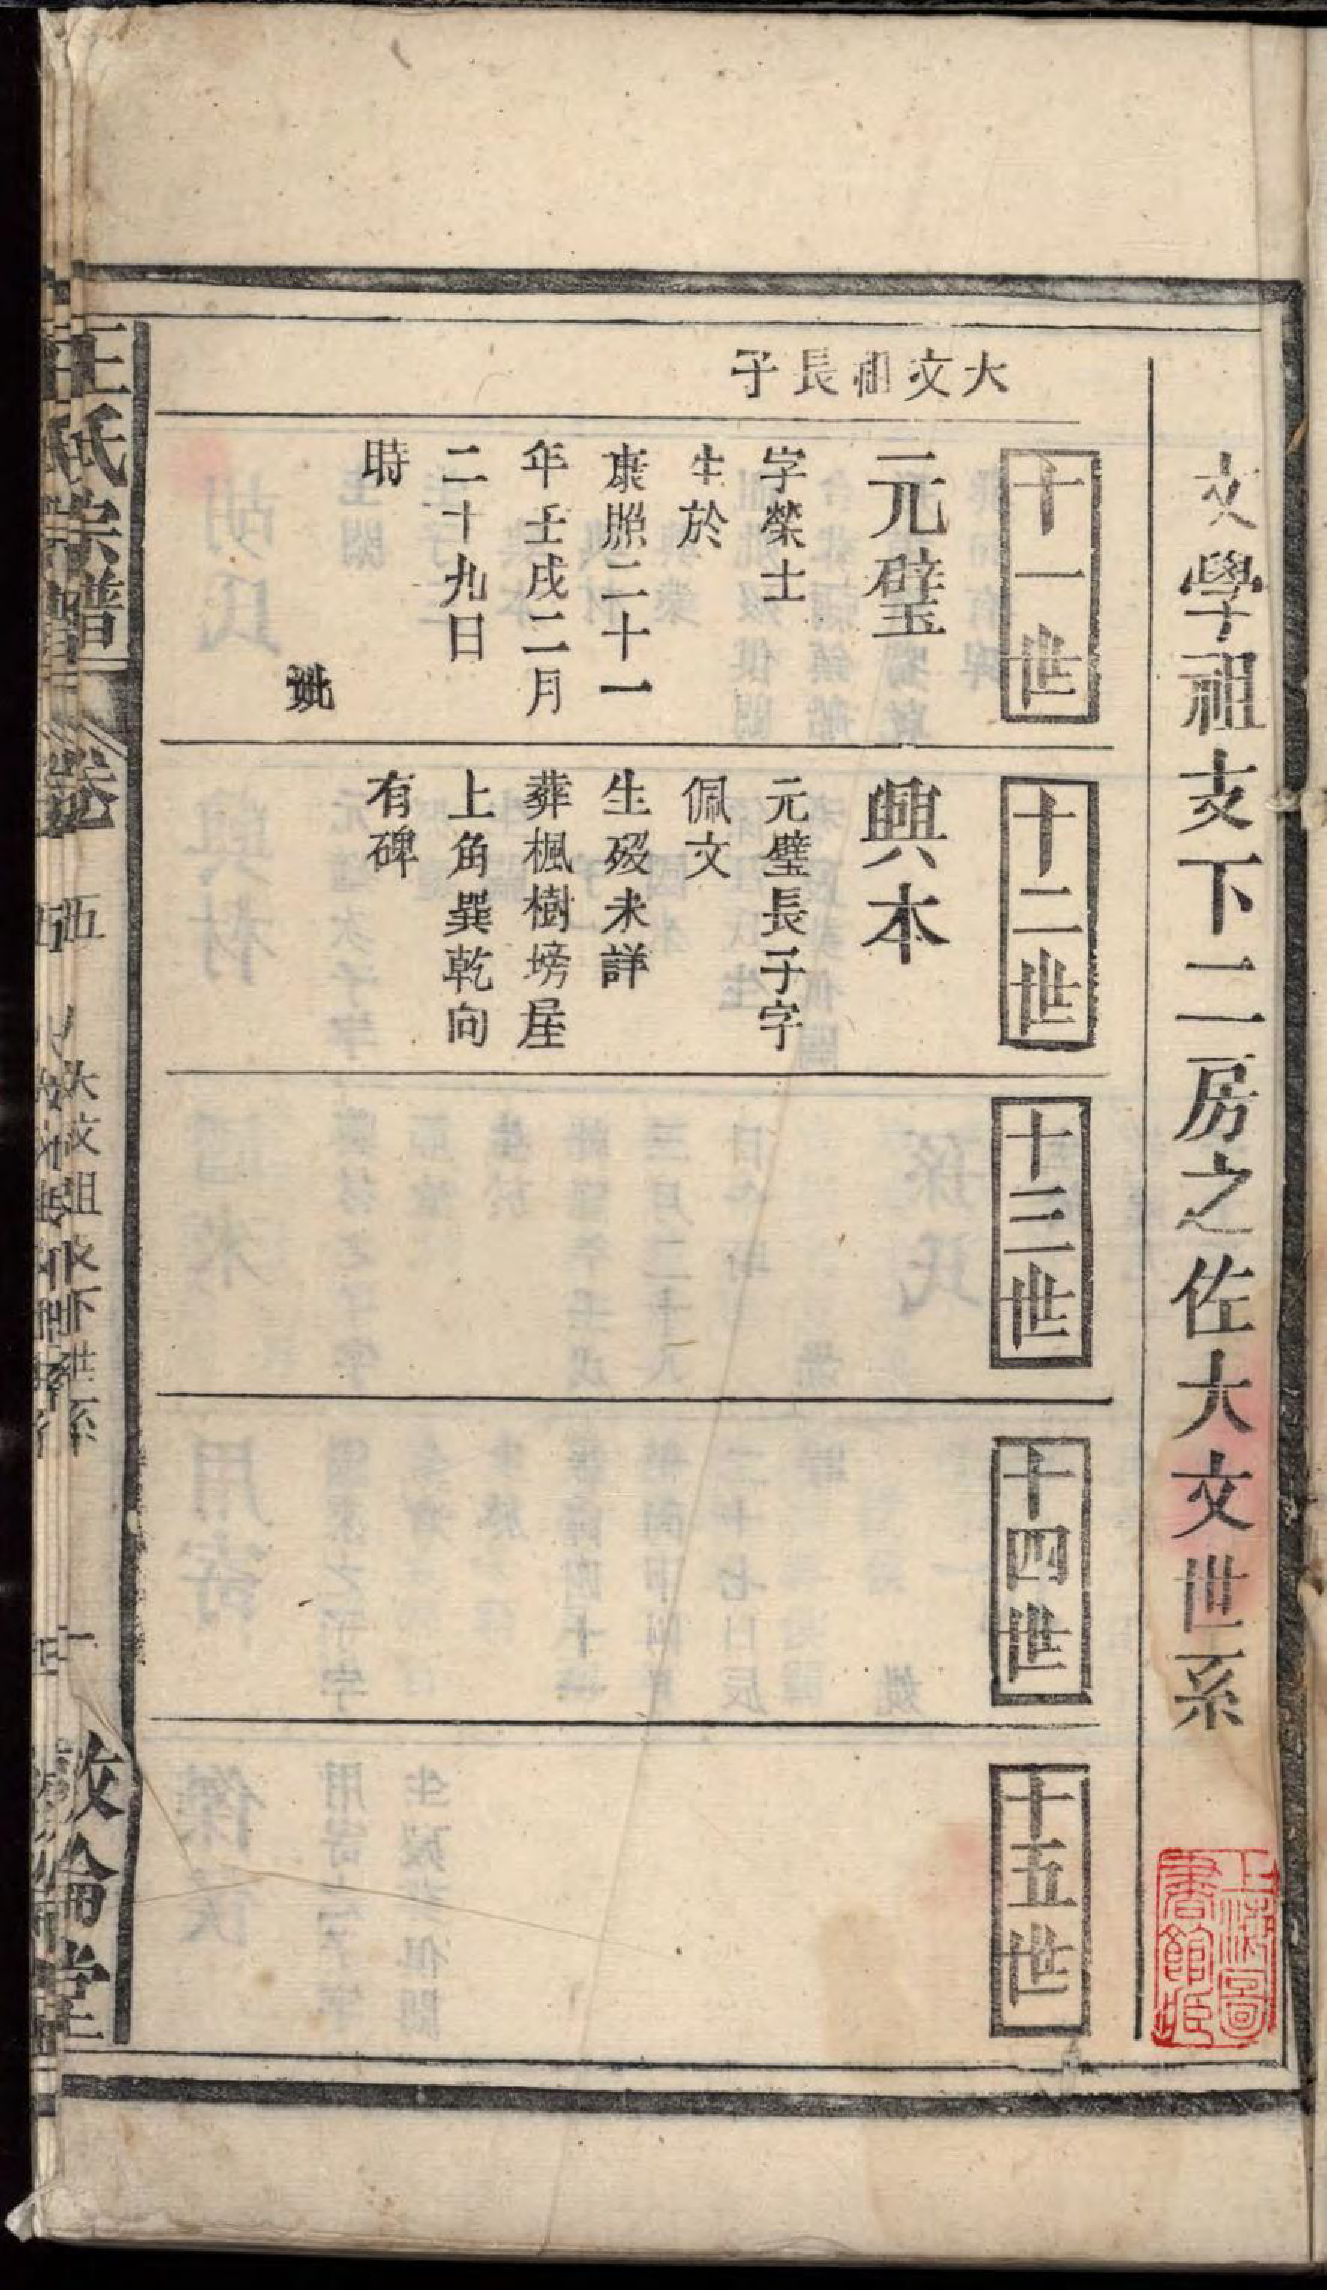 文學祖支下二房之佐大文世系
大文祖長子
十一世
元璧
字榮士
生於
康熙二十一
年壬戌二月
二十九日
時
十二世
興本
元璧長子字
佩文
生歿未詳
葬楓樹塝屋
上角巽乾向
有碑
十三世
十四世
十五世
王氏宗譜
卷
五
大文祖支下世系
一
敦倫堂
上海圖書館藏